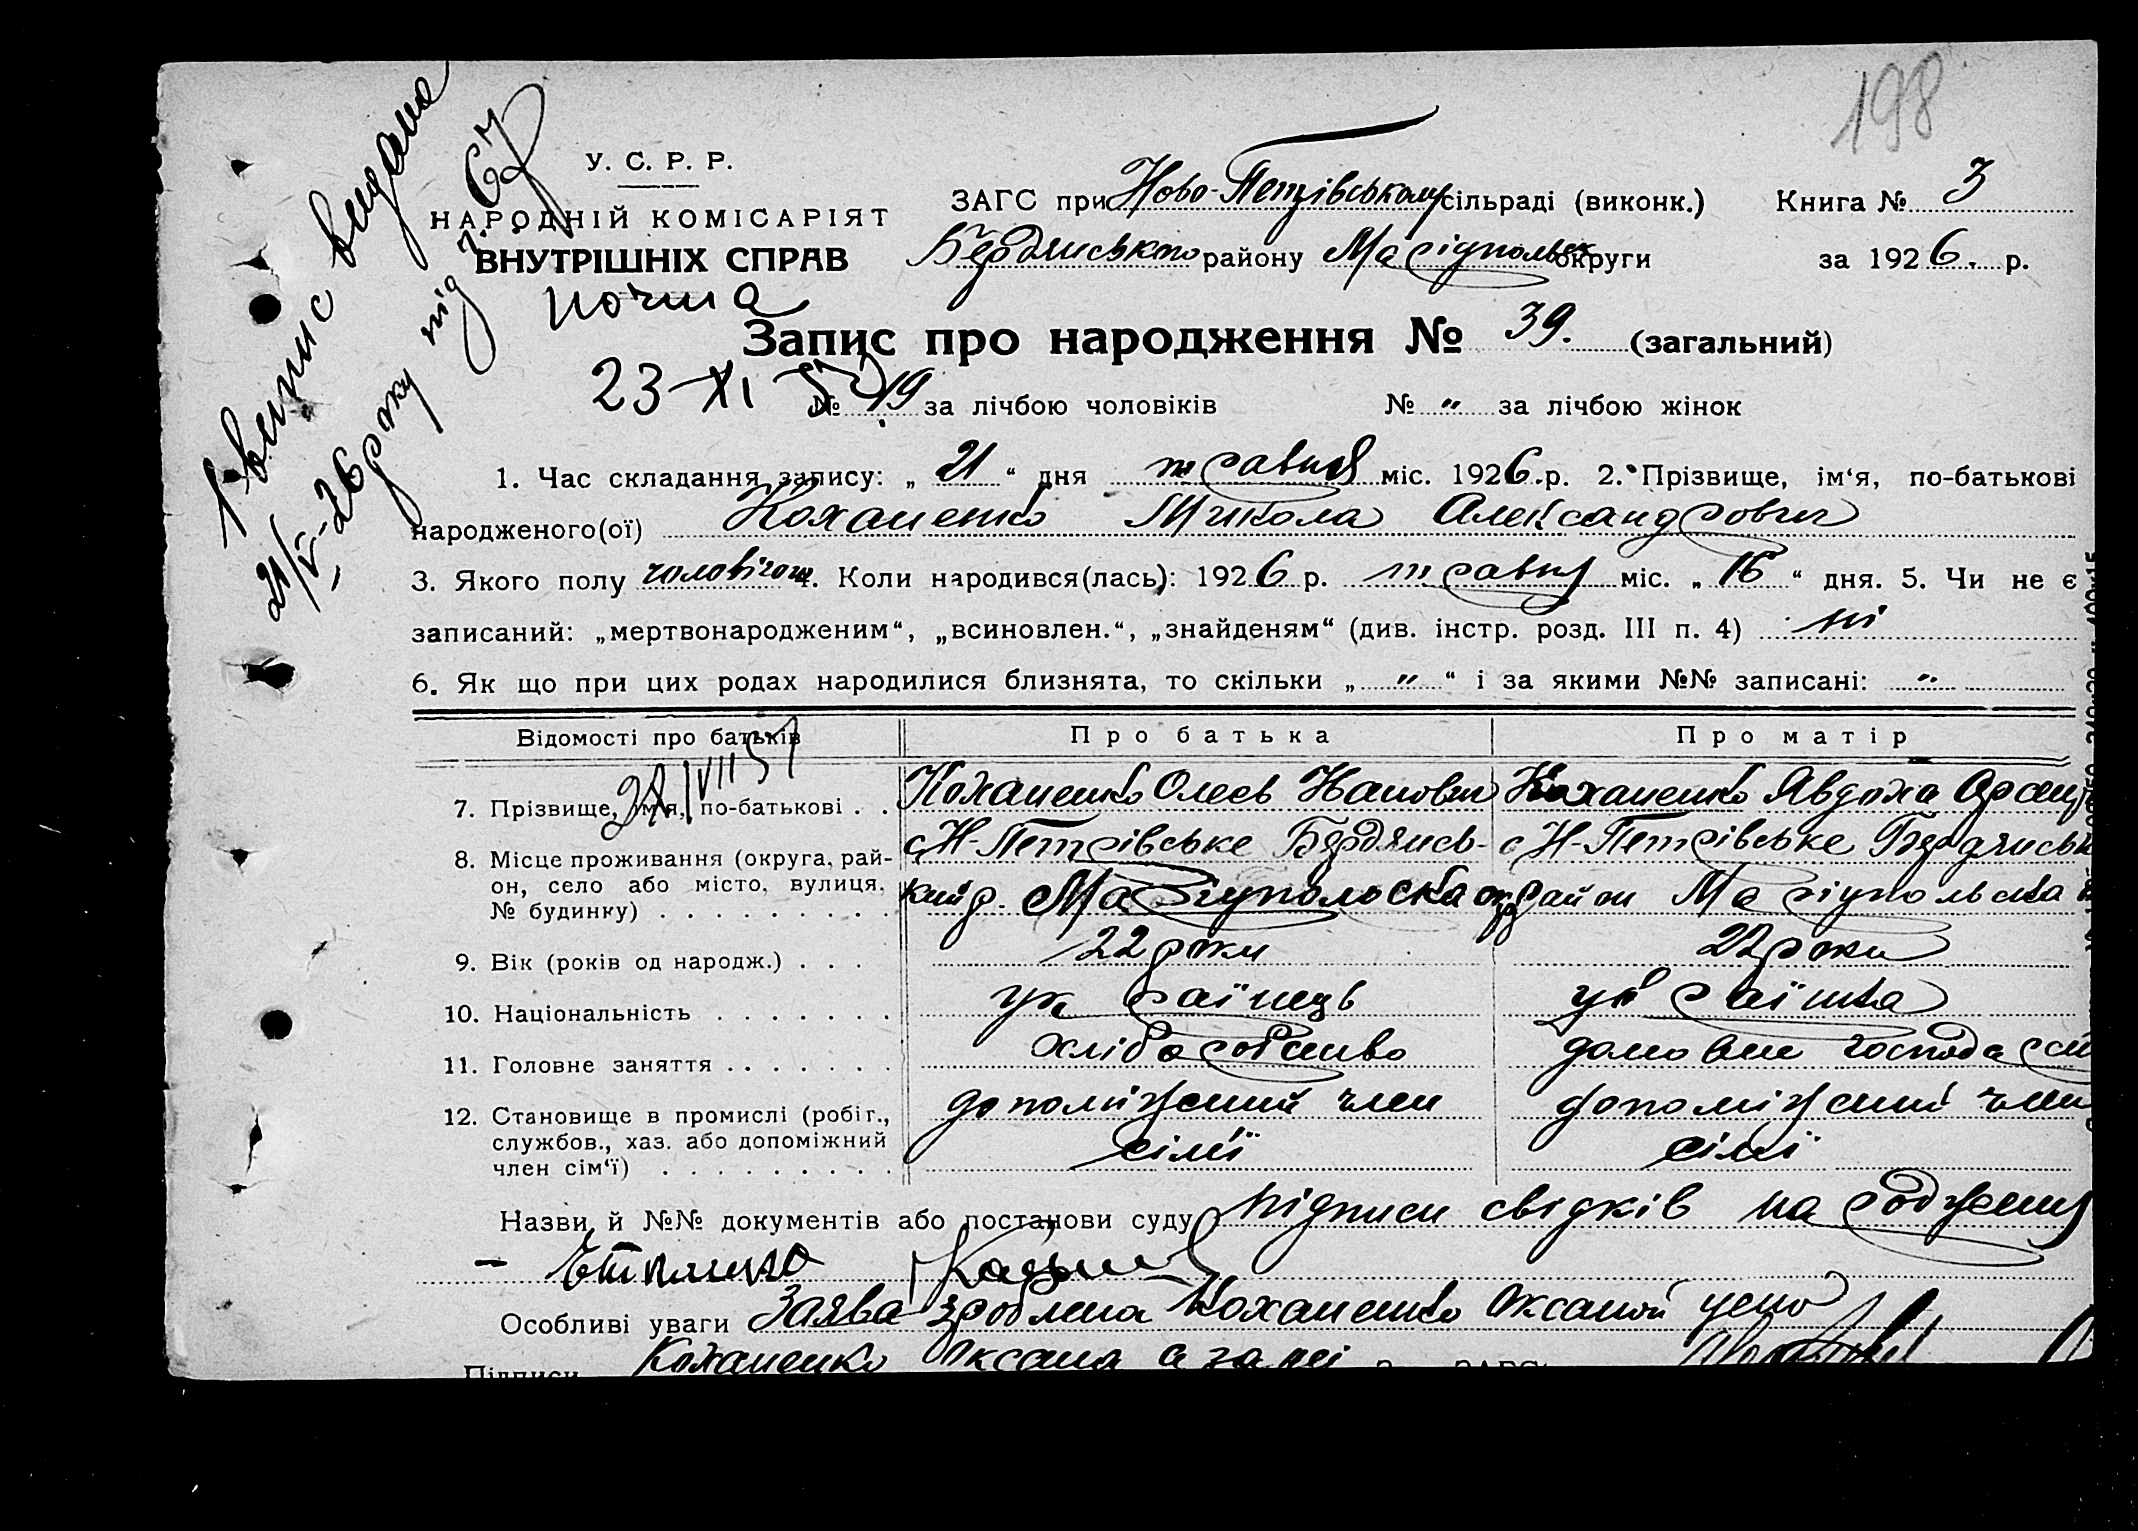 198
У. С. Р. Р.
НАРОДНІЙ КОМІСАРІЯТ
ВНУТРІШНІХ СПРАВ
ЗАГС при Ново-Петрівському сільраді (виконк.) Книга № 3
Бердянського району Маріупольськ округи за 1926. р.
випис видана
21/V-26 року під 67
копія
Запис про народження № 39. (загальний)
23-XI
№ 19 за лічбою чоловіків № " за лічбою жінок
1. Час складання запису: „ 21 “ дня травня міс. 1926.р. 2. Прізвище, ім‘я, по-батькові
народженого(ої) Коханенко Микола Александрович
3. Якого полу чоловічого 4. Коли народився(лась): 1926 р. травня міс. „ 16 “ дня. 5. Чи не є
записаний: „мертвонародженим“, „всиновлен.“, „знайденям“ (див. інстр. розд. III п. 4) ні
6. Як що при цих родах народилися близнята, то скільки „ " “ і за якими №№ записані: "
Відомості про батьків Про батька Про матір
7. Прізвище, ім‘я, по-батькові . . Коханенко Коханенко Явдоха
8. Місце проживання (округа, рай-
он, село або місто, вулиця,
№ будинку) . . . . . . . . .
с Н-Петрівське Бердянсь- с Н-Петрівське Бердянськ
кий р. Маріупольська окр район Маріупольська
9. Вік (років од народж.) . . . 22 роки 22 роки
10. Національність . . . . . . . українець українка
11. Головне заняття . . . . . . . хліборобство домовне господарст
12. Становище в промислі (робіг.,
службов., хаз. або допоміжний
член сім‘ї) . . . . . . . . .
допоміжний член допоміжний член
сімї сімї
Назви й №№ документів або постанови суду підписи свідків на родження
Особливі уваги Заява зроблена Коханенко Оксаной усно
Підписи Коханенко Оксана а за неї ЗАГС